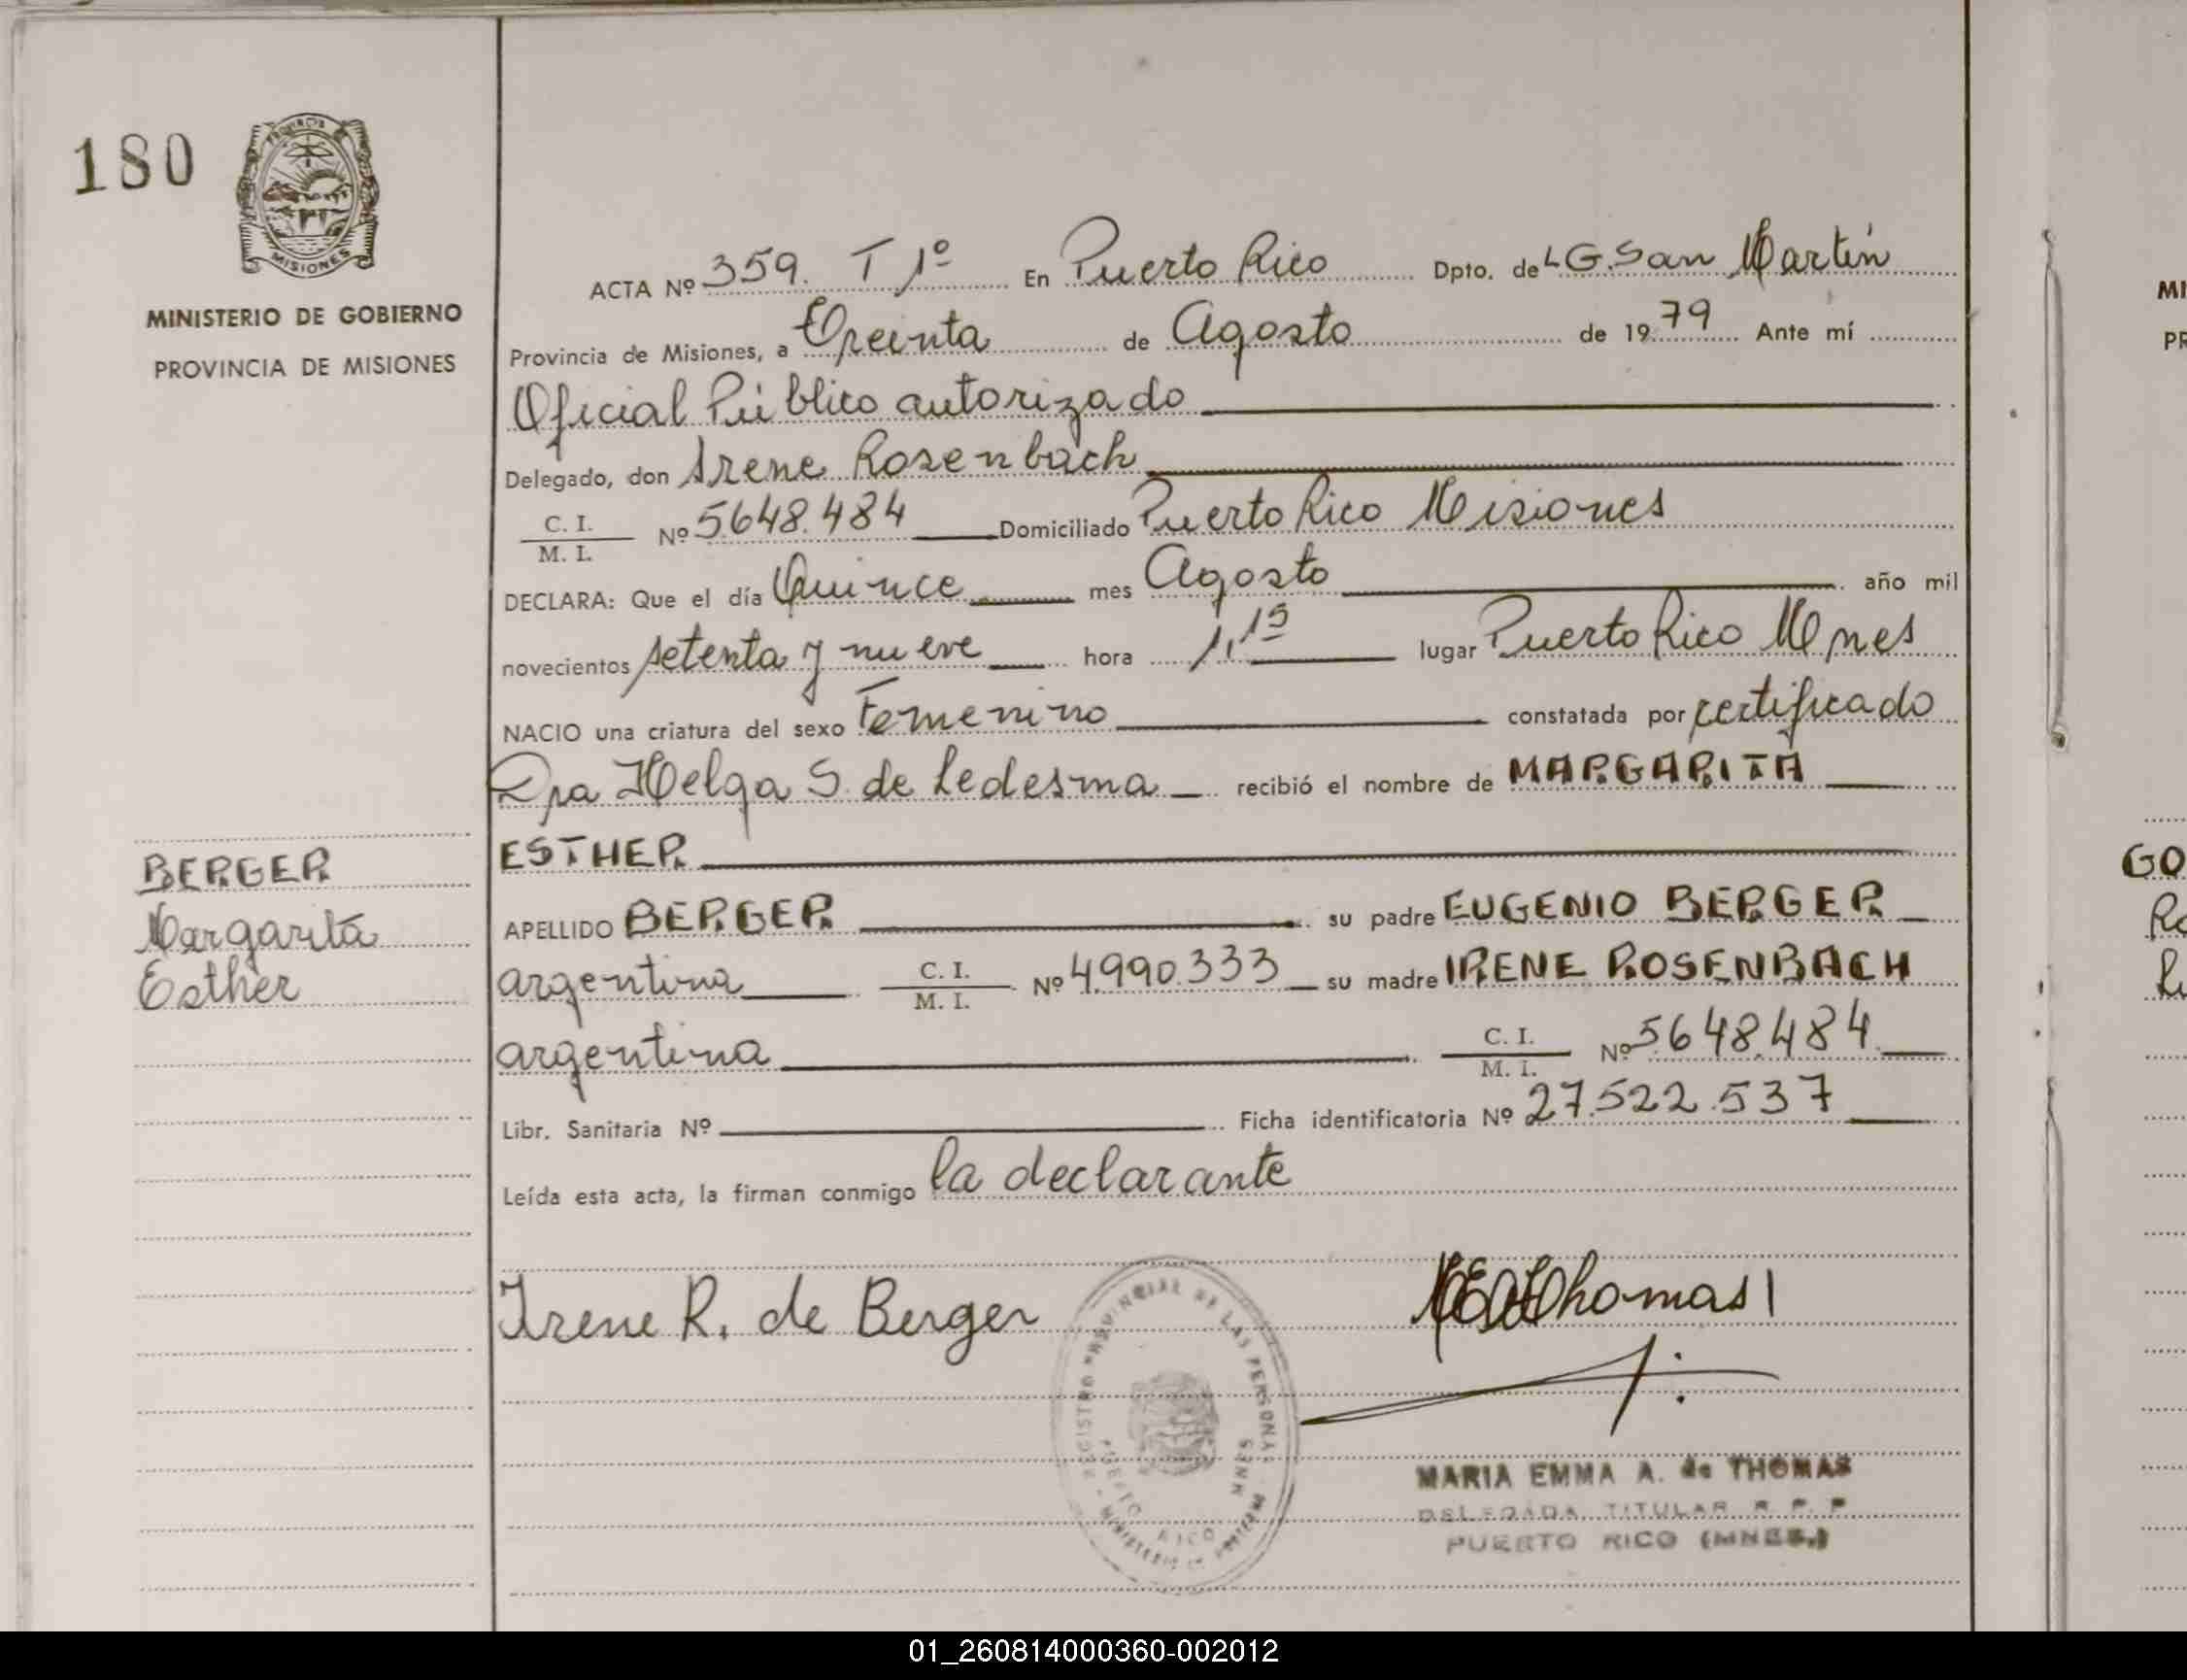 180
PROVINCIA DE
MISIONES
MINISTERIO DE GOBIERNO
PROVINCIA DE MISIONES
BERGER
Margarita
Esther
ACTA Nº 359. T 1º En Puerto Rico Dpto. de L G. San Martín
Provincia de Misiones, a Treinta de Agosto de 1979 Ante mí
Oficial Público autorizado
Delegado, don Irene Rosenbach
C. I.
M. I. Nº 5648.484 Domiciliado Puerto Rico Misiones
DECLARA: Que el día Quince mes Agosto año mil
novecientos setenta y nueve hora 1,15 lugar Puerto Rico Mnes
NACIO una criatura del sexo Femenino constatada por certificado
Dra Helga S. de Ledesma recibió el nombre de MARGARITA
ESTHER
APELLIDO BERGER su padre EUGENIO BERGER
argentina C. I.
M. I. Nº 4.990.333 su madre IRENE ROSENBACH
argentina C. I.
M. I. Nº 5648.484
Libr. Sanitaria Nº Ficha identificatoria Nº 27.522.537
Leída esta acta, la firman conmigo la declarante
Irene R. de Berger
Thomas
REGISTRO PROVINCIAL DE LAS PERSONAS
PUERTO RICO MNES
MARIA EMMA A. de THOMAS
DELEGADA TITULAR R. P. P
PUERTO RICO (MNES.)
MI
PR
GO
01_260814000360-002012